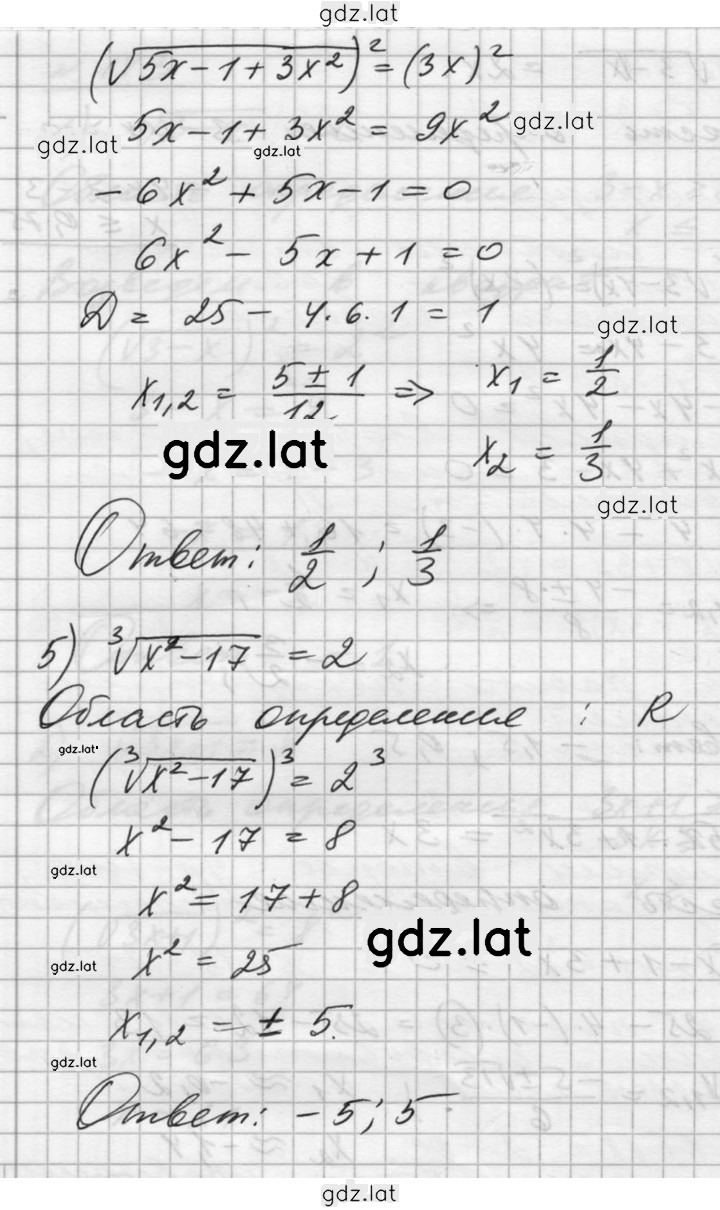 gdz.lat
(√(5x-1+3x²))² = (3x)²
5x-1+3x² = 9x²
gdz.lat
gdz.lat
gdz.lat
-6x²+5x-1=0
6x²-5x+1=0
D = 25-4·6·1=1
gdz.lat
x₁,₂ = (5±1)/12 ⇒ x₁ = 1/2
gdz.lat
x₂ = 1/3
gdz.lat
Ответ: 1/2; 1/3
5) ∛(x²-17) = 2
Область определения: R
gdz.lat
(∛(x²-17))³ = 2³
x²-17=8
gdz.lat
x²=17+8
gdz.lat
gdz.lat
x²=25
x₁,₂ = ± 5.
gdz.lat
Ответ: -5; 5
gdz.lat